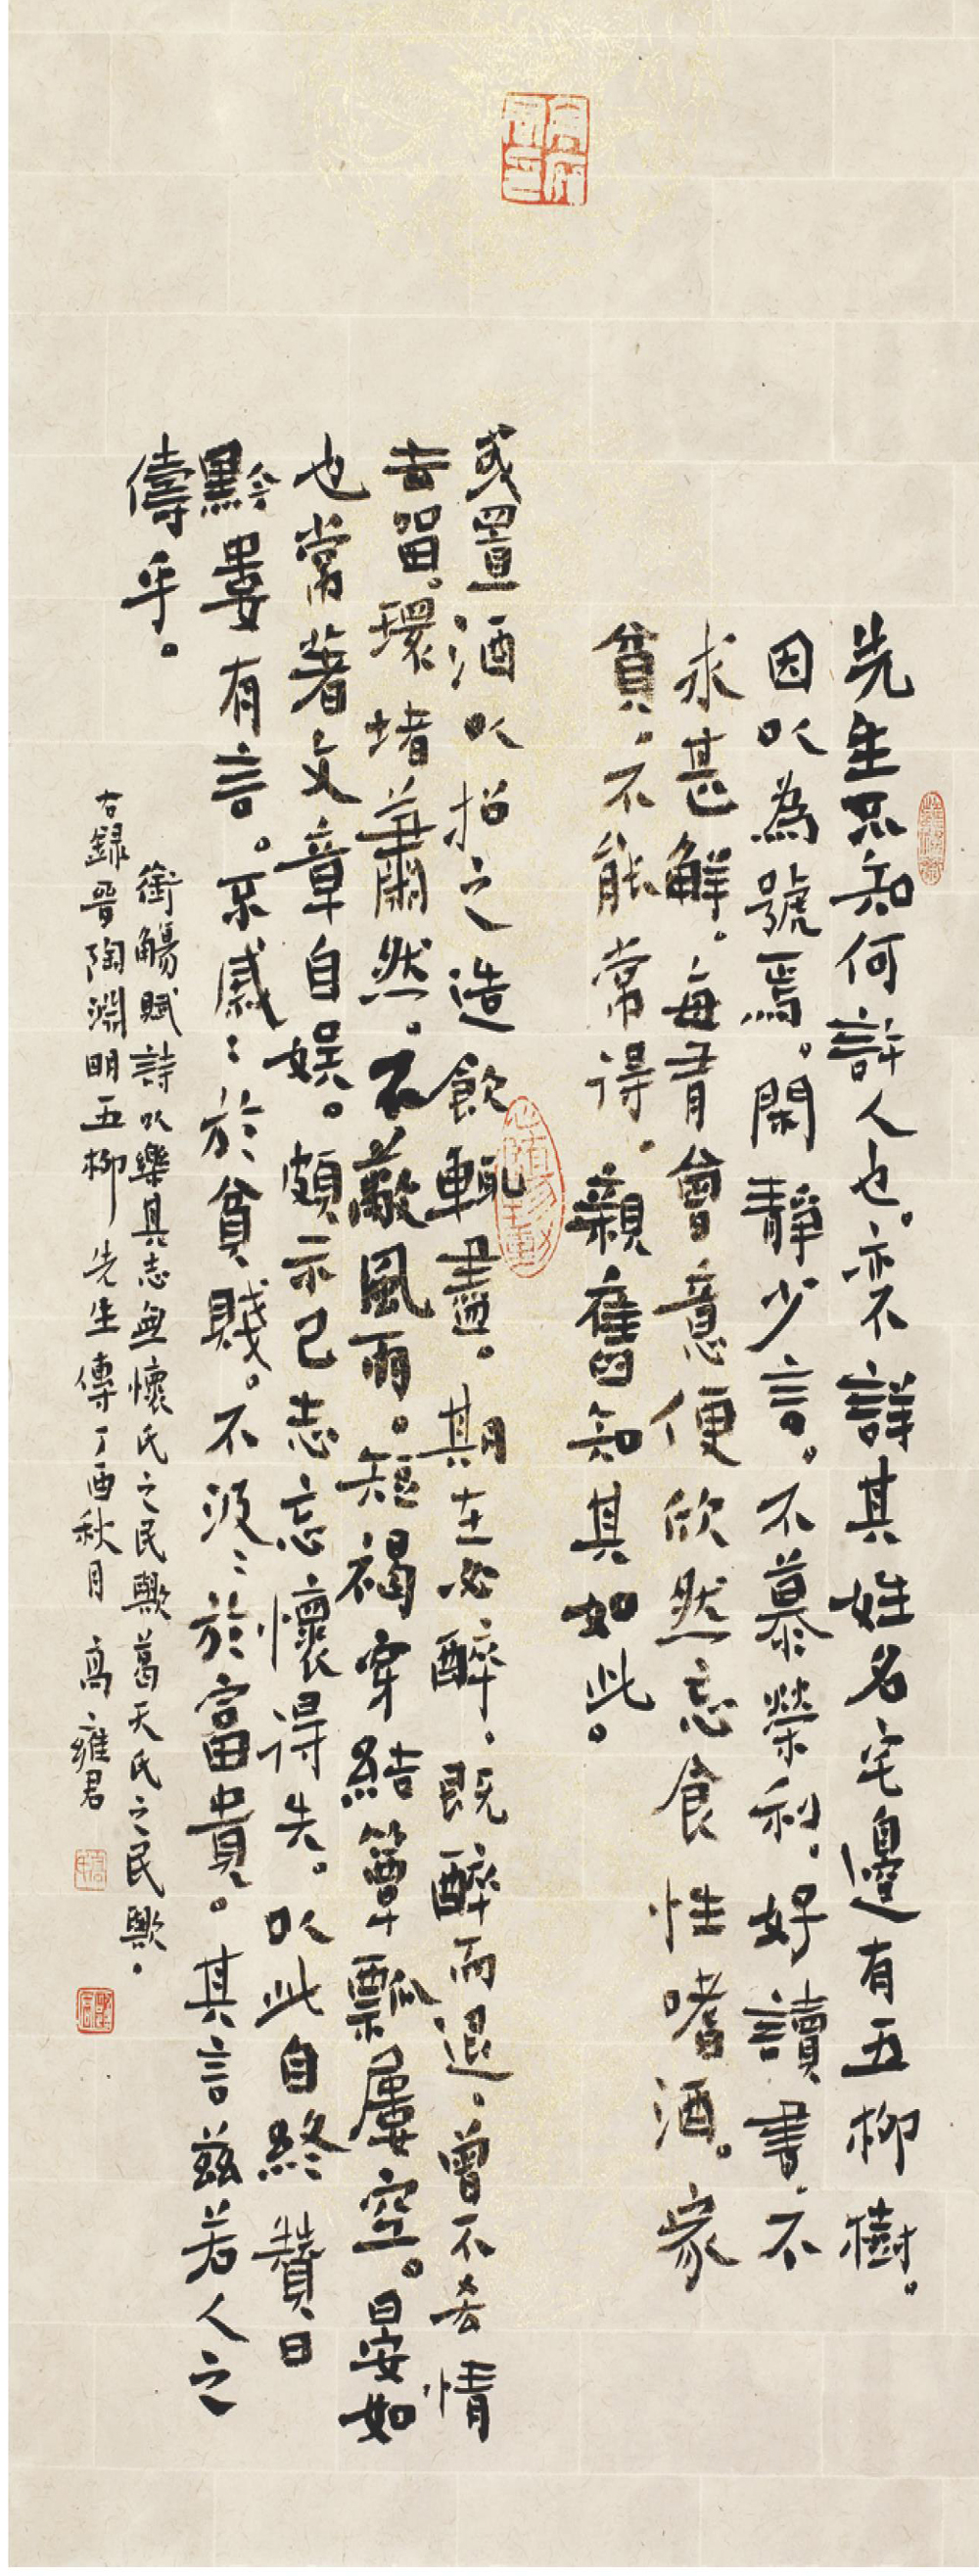 先生不知何許人也。亦不詳其姓名宅邊有五柳樹。
因以為號焉。閑靜少言。不慕榮利。好讀書。不
求甚解。每有會意便欣然忘食性嗜酒。家
貧。不能常得。親舊知其如此。
或置酒以招之造飲輒盡。期在必醉。既醉而退。曾不吝情
去留。環堵蕭然。不蔽風雨。短褐穿結簞瓢屢空。晏如
也常著文章自娛。頗示己志忘懷得失。以此自終贊曰
黔婁有言。不戚:於貧賤。不汲:於富貴。其言茲若人之
儔乎。
銜觴賦詩以樂其志無懷氏之民歟葛天氏之民歟。
右錄晉陶淵明五柳先生傳丁酉秋月 高雍君